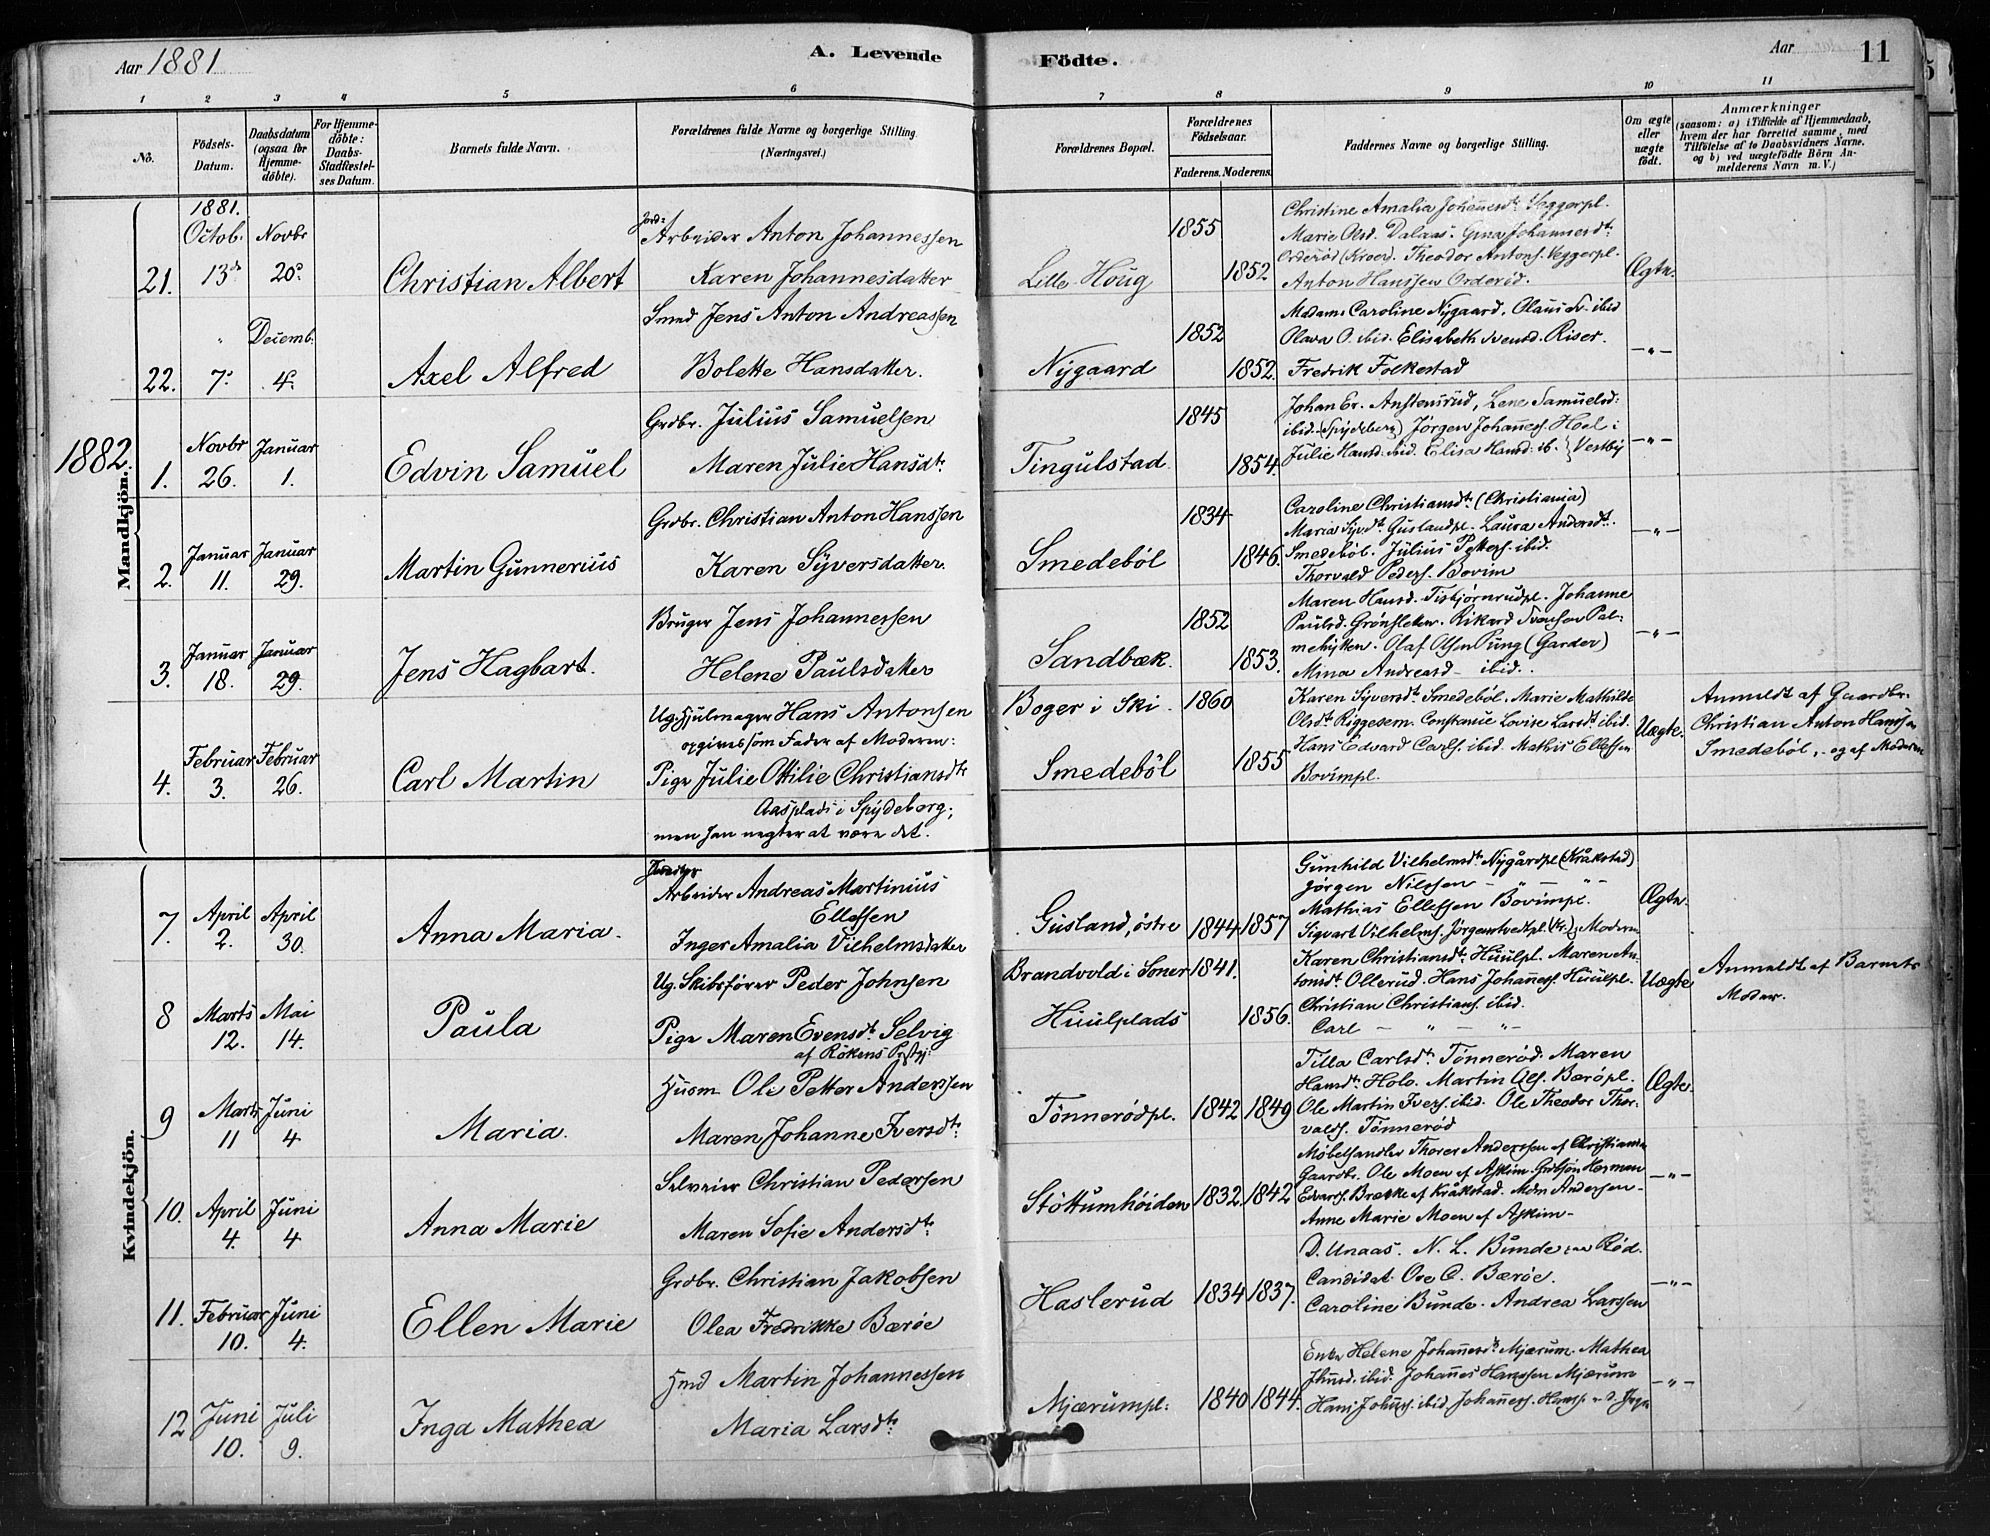 Aar 1881
A. Levende
Födte.
Aar
11
1 2 3 4 5 6 7 8 9 10 11
No.
Födsels-
Datum.
Daabsdatum
(ogsaa for
Hjemme-
döbte).
For Hjemme-
döbte:
Daabs-
Stadfæstel-
ses Datum.
Barnets fulde Navn.
Forældrenes fulde Navne og borgerlige Stilling.
(Næringsvei.)
Forældrenes Bopæl.
Forældrenes
Födselsaar.
Faderens. Moderens.
Faddernes Navne og borgerlige Stilling.
Om ægte
eller
uægte
födt.
Anmærkninger
(saasom: a) i Tilfælde af Hjemmedaab,
hvem der har forrettet samme, med
Tilföielse af to Daabsvidners Navne,
og b) ved uægtefödte Börn An-
melderens Navn m. V.)
Mandkjön.
21. 1881. Octob. 13de Novbr 20de
Christian Albert
Arbeider Anton Johannessen
Karen Johannesdatter
Lille Houg
1855 1852
Christine Amalia Johannesdt. Veggerpl.
Marie Olsd. Dalaas. Gina Johannesdt.
Orderöd (Kroer). Theodor Antons. Veggerpl.
Anton Hanssen Orderöd.
Ægte.
22. " 7de Decemb. 4de
Axel Alfred
Smed Jens Anton Andreassen
Bolette Hansdatter.
Nygaard
1852 1852.
Madame Caroline Nygaard, Olaus ibid
Olava O. ibid. Elisabeth Svensd. Riser.
Fredrik Folkestad
—"—
1882.
1. Novbr 26. Januar 1.
Edvin Samuel
Grdbr. Julius Samuelsen
Maren Julie Hansdt.
Tingulstad
1845 1854.
Johan Er. Anstensrud, Lene Samuelsd:
ibid. (Spydeberg) Jörgen Johannes. Hoel i
Julie Hansd. ibid. Elisa Hansd. ib. } Vestby
—"—
2. Januar 11. Januar 29.
Martin Gunnerius
Grdbr. Christian Anton Hanssen
Karen Syversdatter.
Smedeböl
1834 1846.
Caroline Christiansdt. (Christiania)
Maria Syvdt. Guslandpl. Laura Andersdt.
Smedeböl. Julius Petters. ibid.
Thorvald Peders. Bovim
—"—
3. Januar 18. Januar 29.
Jens Hagbart.
Bruger Jens Johannessen
Helene Paulsdatter
Sandbæk.
1852 1853.
Maren Hansd. Tistjörnrudpl. Johanne
Paulsd. Grönslett. Rikard Svensen Pal-
mehytten. Olaf Olsen Pung (Garder)
Mina Andreasd — ibid.
—"—
4. Februar 3. Februar 26.
Carl Martin
Ug. Hjulmager Hans Antonsen
opgives som Fader af Moderen:
Pige Julie Ottilie Christiansdt.
Aasplads i Spydeberg;
men han negter at være det.
Boger i Ski.
Smedeböl
1860 1855
Karen Syversdt. Smedeböl. Marie Mathilde
Olsdt. Riggesem. Constance Lovise Larsdt. ibid.
Hans Edvard Carls. ibid. Mathis Ellefsen
Bovimpl.
Uægte.
Anmeldt af Gaardbr.
Christian Anton Hanssen
Smedeböl, og af Moderen
Kvindekjön.
7. April 2. April 30.
Anna Maria.
Arbeider Andreas Martinius
Ellefsen
Inger Amalia Vilhelmsdatter
Gusland, östre
1844 1857
Gunhild Vilhelmsdt. Nygårdpl (Kråkstad)
Jörgen Nilssen — " — " —
Mathias Ellefsen Bovimpl.
Sigvart Vilhelms. Jörgentvedtpl. (Kr.); Moderen
Ægte.
8 Marts 12. Mai 14.
Paula
Ug. Skibsförer Peder Johnsen
Pige Maren Evensdt. Selvig
af Rökens Prstgj:
Brandvold i Soner
Huulplads
1841. 1856.
Karen Christiansdt. Huulpl. Maren An-
tonsdt. Ollerud. Hans Johannes. Huulpl.
Christian Christians. ibid.
Carl — " — " —
Uægte
Anmeldt af Barnets
Moder.
9 Marts 11 Juni 4
Maria.
Husm. Ole Petter Anderssen
Maren Johanne Iversdt.
Tönnerödpl.
1842 1849
Tilla Carlsdt. Tönneröd. Maren
Hansdt. Holo. Martin Ols. Beröpl.
Ole Martin Ivers. ibid. Ole Theodor Thor-
valds. Tönneröd
Ægte.
10. April 4. Juni 4
Anna Marie
Selveier Christian Pedersen
Maren Sofie Andersdt.
Stöttumhöiden
1832 1842
Möbelhandler Thorer Anderssen af Christiania
Gaardbr. Ole Moen af Askim. Herman
Edvards. Brække af Kråkstad. Mdm Andersen
Anne Marie Moen af Askim
—"—
11. Februar 10. Juni 4.
Ellen Marie
Grdbr. Christian Jakobsen
Olea Fredrikke Bæröe
Haslerud
1834 1837.
D. Unaas. N. L. Bunde Röd.
Candidat Ove C. Bæröe.
Caroline Bunde. Andrea Larssen
—"—
12 Juni 10. Juli 9.
Inga Mathea
Hmd Martin Johannessen
Maria Larsdt.
Mjærumpl:
1840 1844.
Enke Helene Johannesdt. Mjærum. Mathea
ibid. Johannes Hanssen Mjærum
Hans Johns. ibid. Johannes. Hans.
—"—